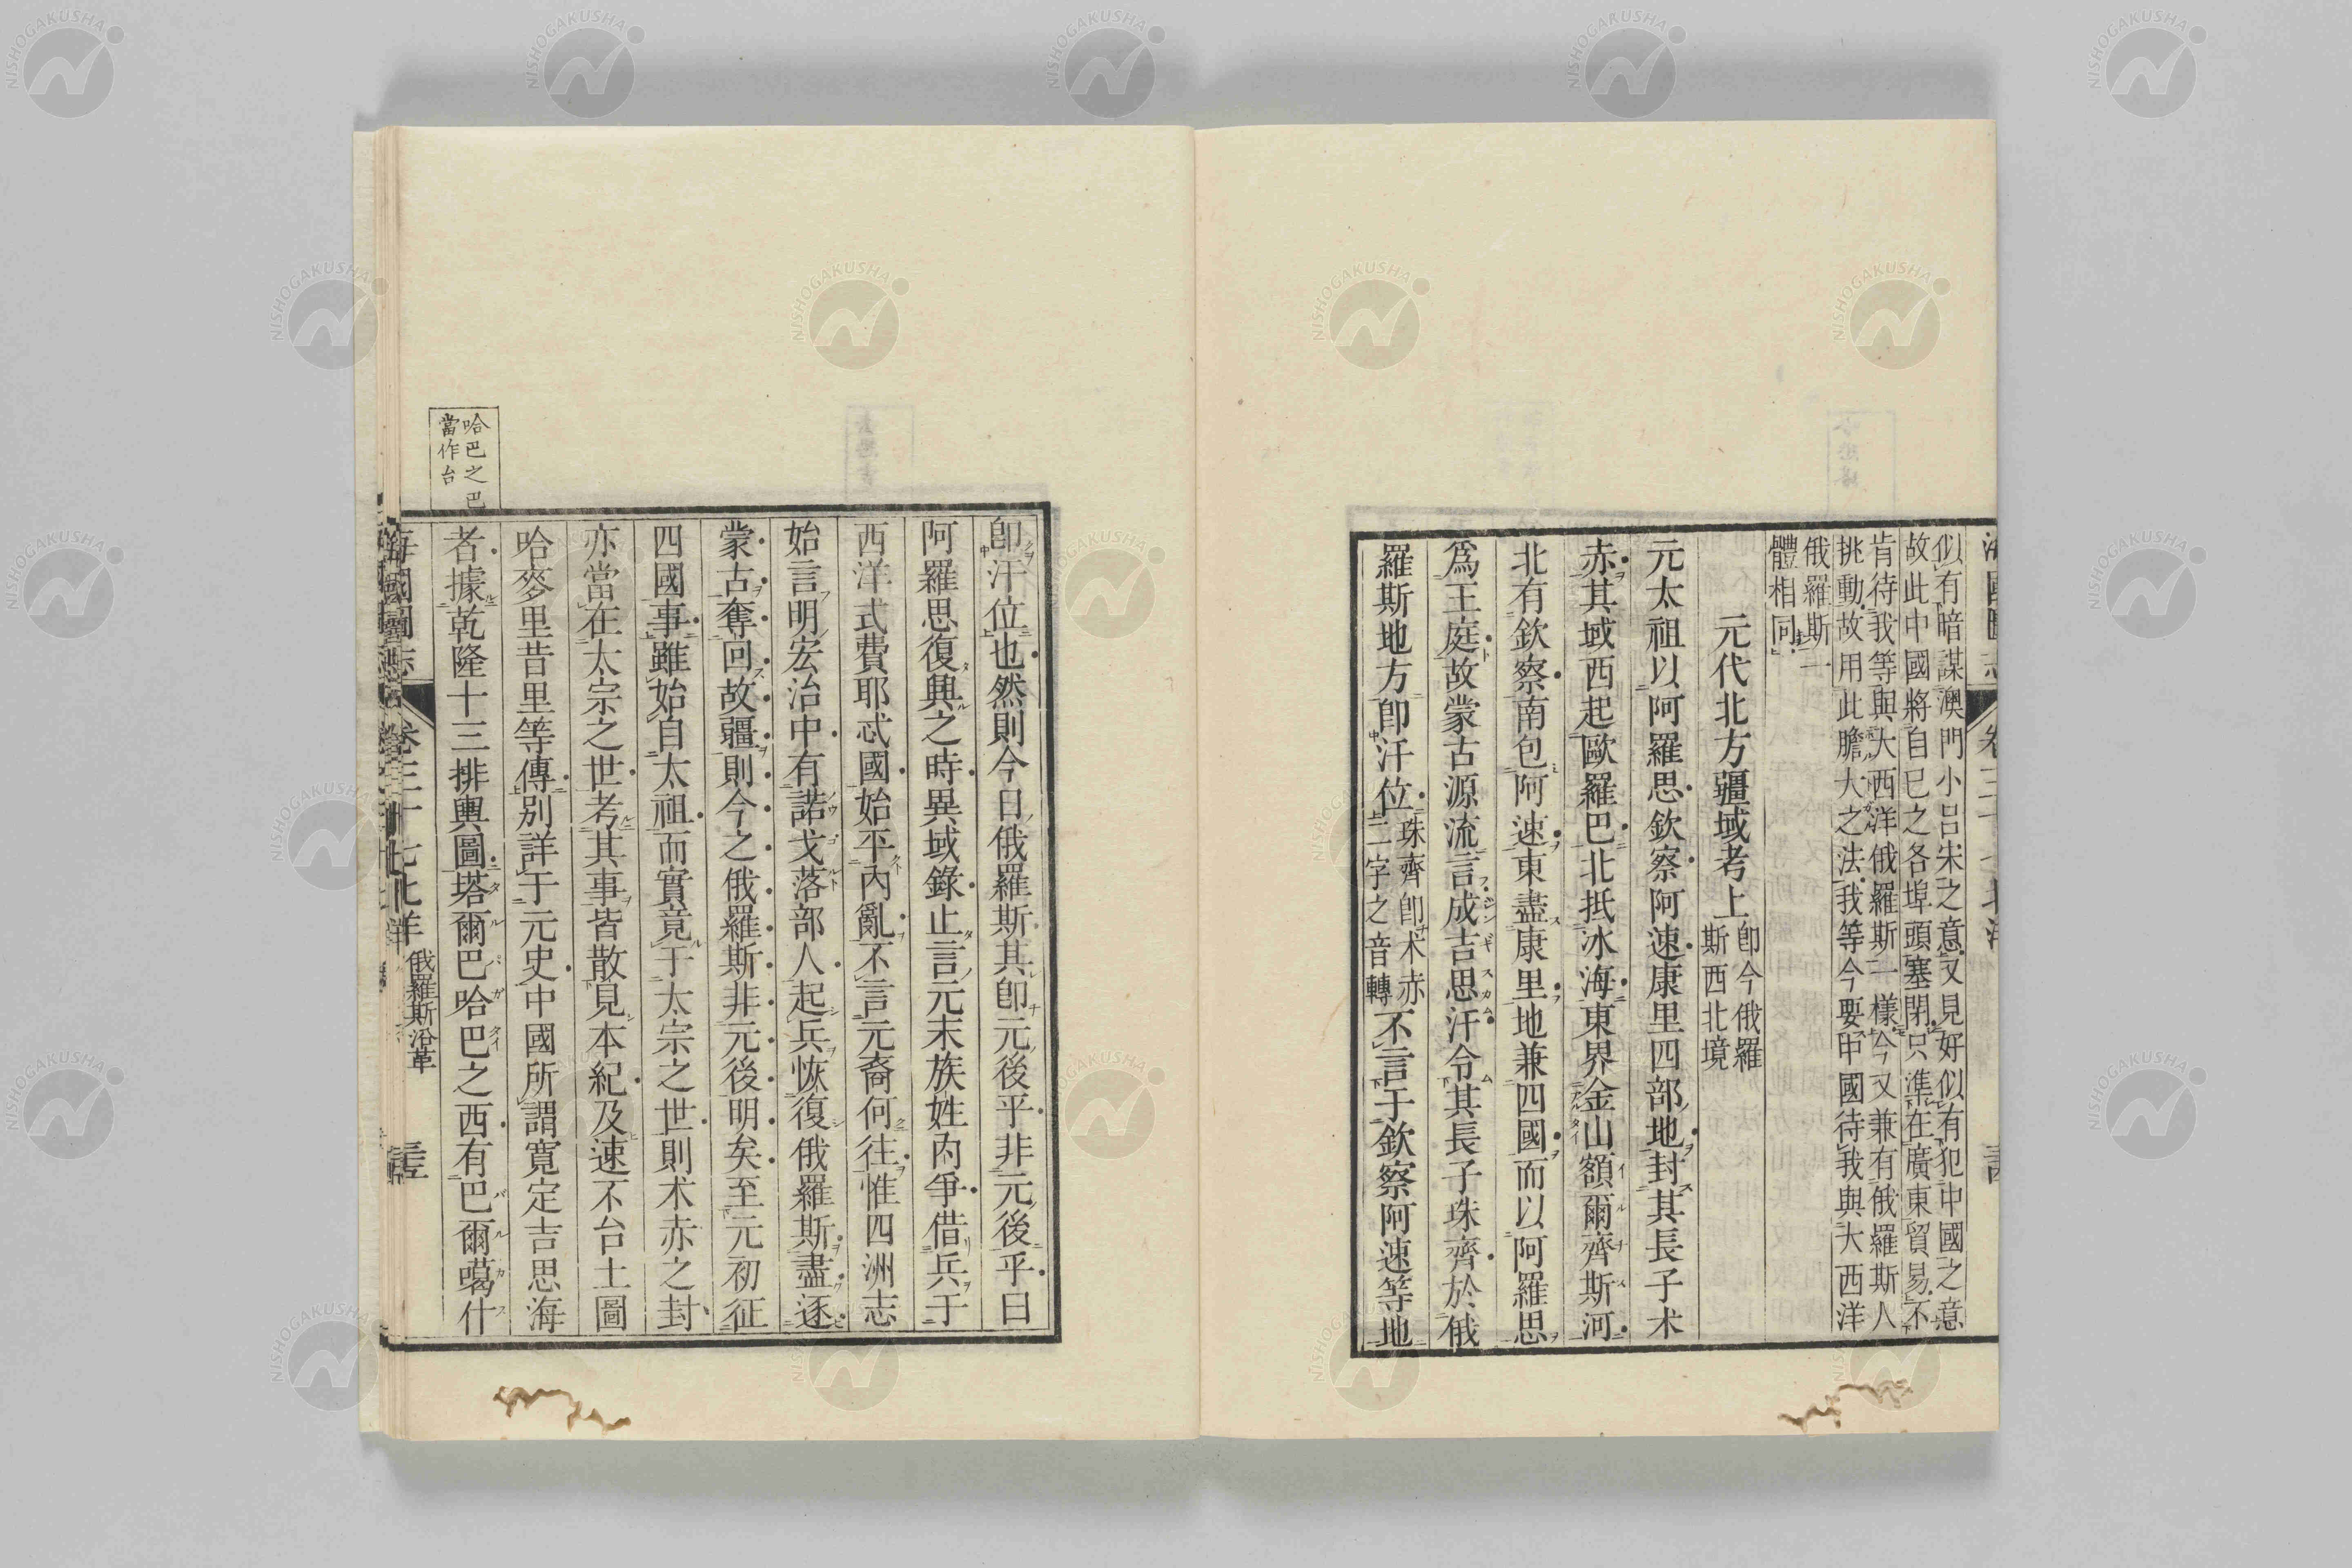 似有暗謀澳門小呂宋之意又見好似有犯中國之意
故此中國將自已之各埠頭塞閉只準在廣東貿易不
肯待我等與大西洋俄羅斯一樣今又兼有俄羅斯人
挑動故用此膽大之法我等今要中國待我與大西洋
俄羅斯一
體相同
元代北方疆域考上
即今俄羅
斯西北境
元太祖以阿羅思欽察阿速康里四部地封其長子朮
赤其域西起歐羅巴北抵冰海東界金山額爾齊斯河
北有欽察南包阿速東盡康里地兼四國而以阿羅思
為王庭故蒙古源流言成吉思汗令其長子珠齊於俄
羅斯地方即汗位
珠齊即朮赤
二字之音轉
不言于欽察阿速等地
即汗位也然則今日俄羅斯其即元後乎非元後乎曰
阿羅思復興之時異域錄止言元末族姓內爭借兵于
西洋式費耶忒國始平內亂不言元裔何往惟四洲志
始言明宏治中有諾戈落部人起兵恢復俄羅斯盡逐
蒙古奪回故疆則今之俄羅斯非元後明矣至元初征
四國事雖始自太祖而實竟于太宗之世則朮赤之封
亦當在太宗之世考其事皆散見本紀及速不台土圖
哈麥里昔里等傳別詳于元史中國所謂寬定吉思海
者據乾隆十三排輿圖塔爾巴哈巴之西有巴爾噶什
哈巴之巴
當作台
海國圖志 卷三十七 北洋 俄羅斯沿革